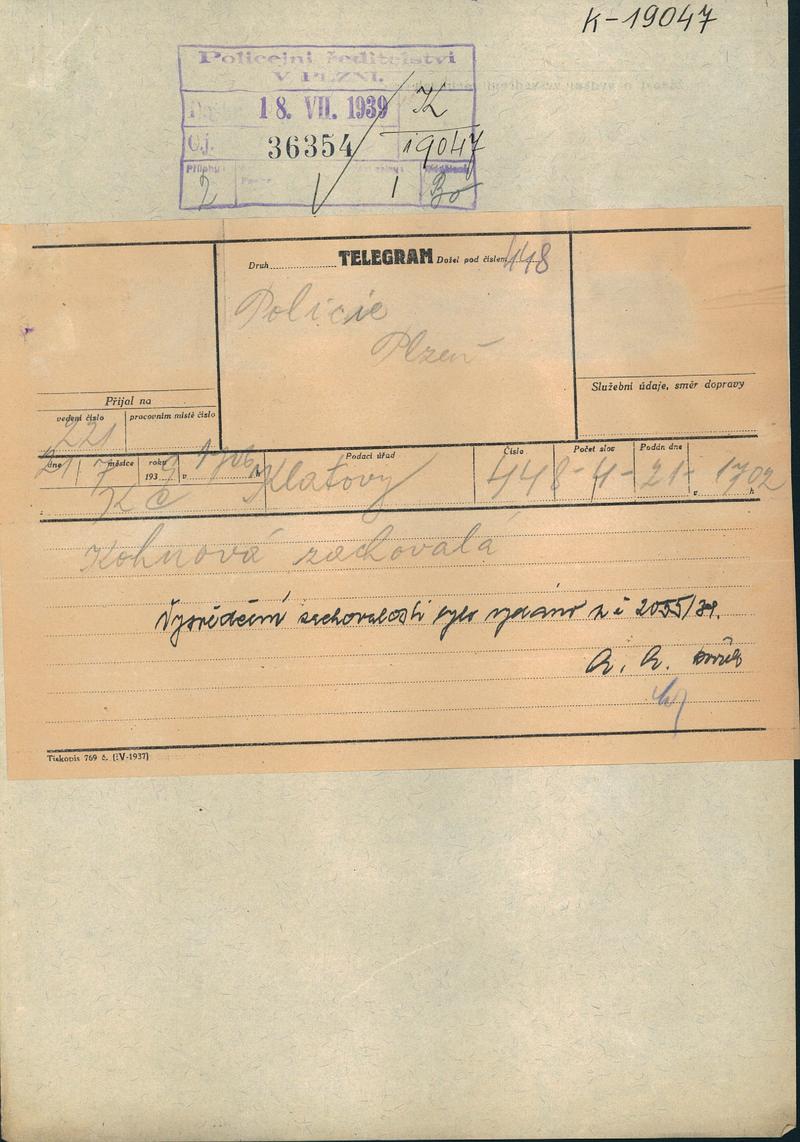 K-19047
Policejní ředitelství
V PLZNI.
18. VII. 1939 K
Čj. 36354 19047
Přílohy
2 1 Bo
Druh TELEGRAM Došel pod číslem 448
Policie
Plzeň
Přijal na
Služební údaje, směr dopravy
vedení číslo pracovním místě číslo
221
dne měsíce roku 193 v h Podací úřad Číslo Počet slov Podán dne v h
21 7 9 1706 Klatovy 448 - 4 - 21 - 1702
Kč
Kohnová zachovalá
Vysvědčení zachovalosti bylo vydáno z č 2055/39.
Tiskopis 769 č. (IV-1937)